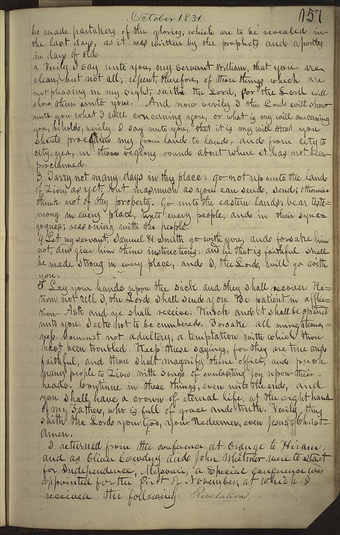 October 1831.
157
be made partakers of the glories, which are to be revealed in
the last days, as it was written by the prophets and apostles
in days of old.
2 Verily I say unto you, my servant William, that you are
clean, but not all; repent, therefore, of those things which are
not pleasing in my sight, saith the Lord, for the Lord will
show them unto you. And now verily I the Lord will show
unto you what I will concerning you, or what is my will concerning
you, behold, verily I say unto you, that it is my will that you
should proclaim my from land to land, and from city to
city, yea, in those regions round about where it has not been
proclaimed.
3 Tarry not many days in this place: go not up unto the land
of Zion, as yet; but inasmuch as you can send, send; otherwise
think not of thy property. Go unto the eastern lands; bear testi-
mony in every place, unto every people, and in their syna-
gogues; reasoning with the people.
4 Let my servant Samuel H. Smith go with you, and forsake him
not, and give him thine instructions: and he that is faithful shall
be made strong in every place, and I, the Lord, will go with
you.
5 Lay your hands upon the sick and they shall recover. Re-
turn not till I, the Lord shall send you. Be patient in afflic-
tion. Ask and ye shall receive. Knock and it shall be opened
unto you. Seek not to be cumbered. Forsake all unrighteous-
ness. Commit not adultery, a temptation with which thou
hast been troubled. Keep these sayings, for they are true and
faithful, and thou shalt magnify thine office, and push
many people to Zion with songs of everlasting joy upon their
heads. Continue in these things, even unto the end, and
you shall have a crown of eternal life at the right hand
of my Father, who is full of grace and truth. Verily thus
saith the Lord your God, your Redeemer, even Jesus Christ.
Amen.
I returned from the conference at Orange to Hiram
and as Oliver Cowdery and John Whitmer were to start
for Independence, Missouri, a special conference was
appointed for the first of November, at which I
received the following Revelation